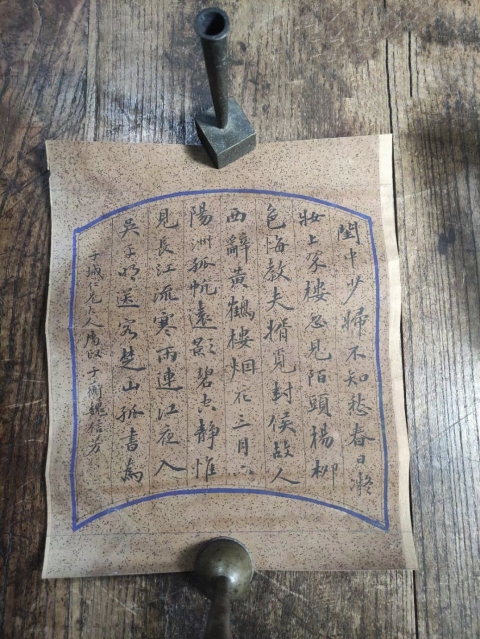 閨中少婦不知愁春日凝
妝上翠樓忽見陌頭楊柳
色悔教夫婿覓封侯故人
西辭黃鶴樓烟花三月下
陽洲孤帆遠影碧空靜惟
見長江流寒雨連江夜入
吳平明送客楚山孤書為
子誠仁老大人属 子衡魏信芳